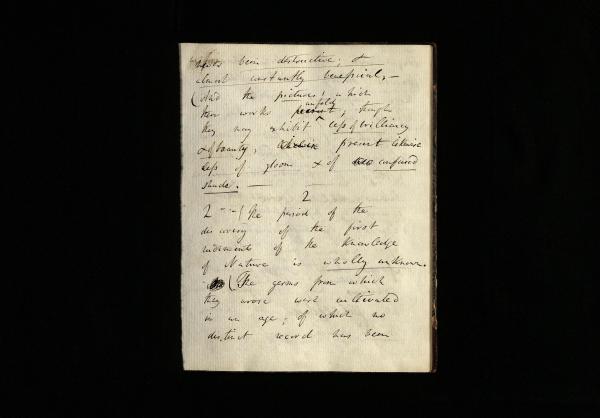 has been destructive; &
almost constantly beneficial, —
(And the pictures, which
their works present unfold; though
they may exhibit less of brilliancy
& of beauty, present likewise
less of gloom & of confused
shade. —
2
2 - - - (The period of the
discovery of the first
rudiments of the knowledge
of Nature is wholly unknown.
(The germs from which
they arose were cultivated
in an age; of which no
distinct record has been